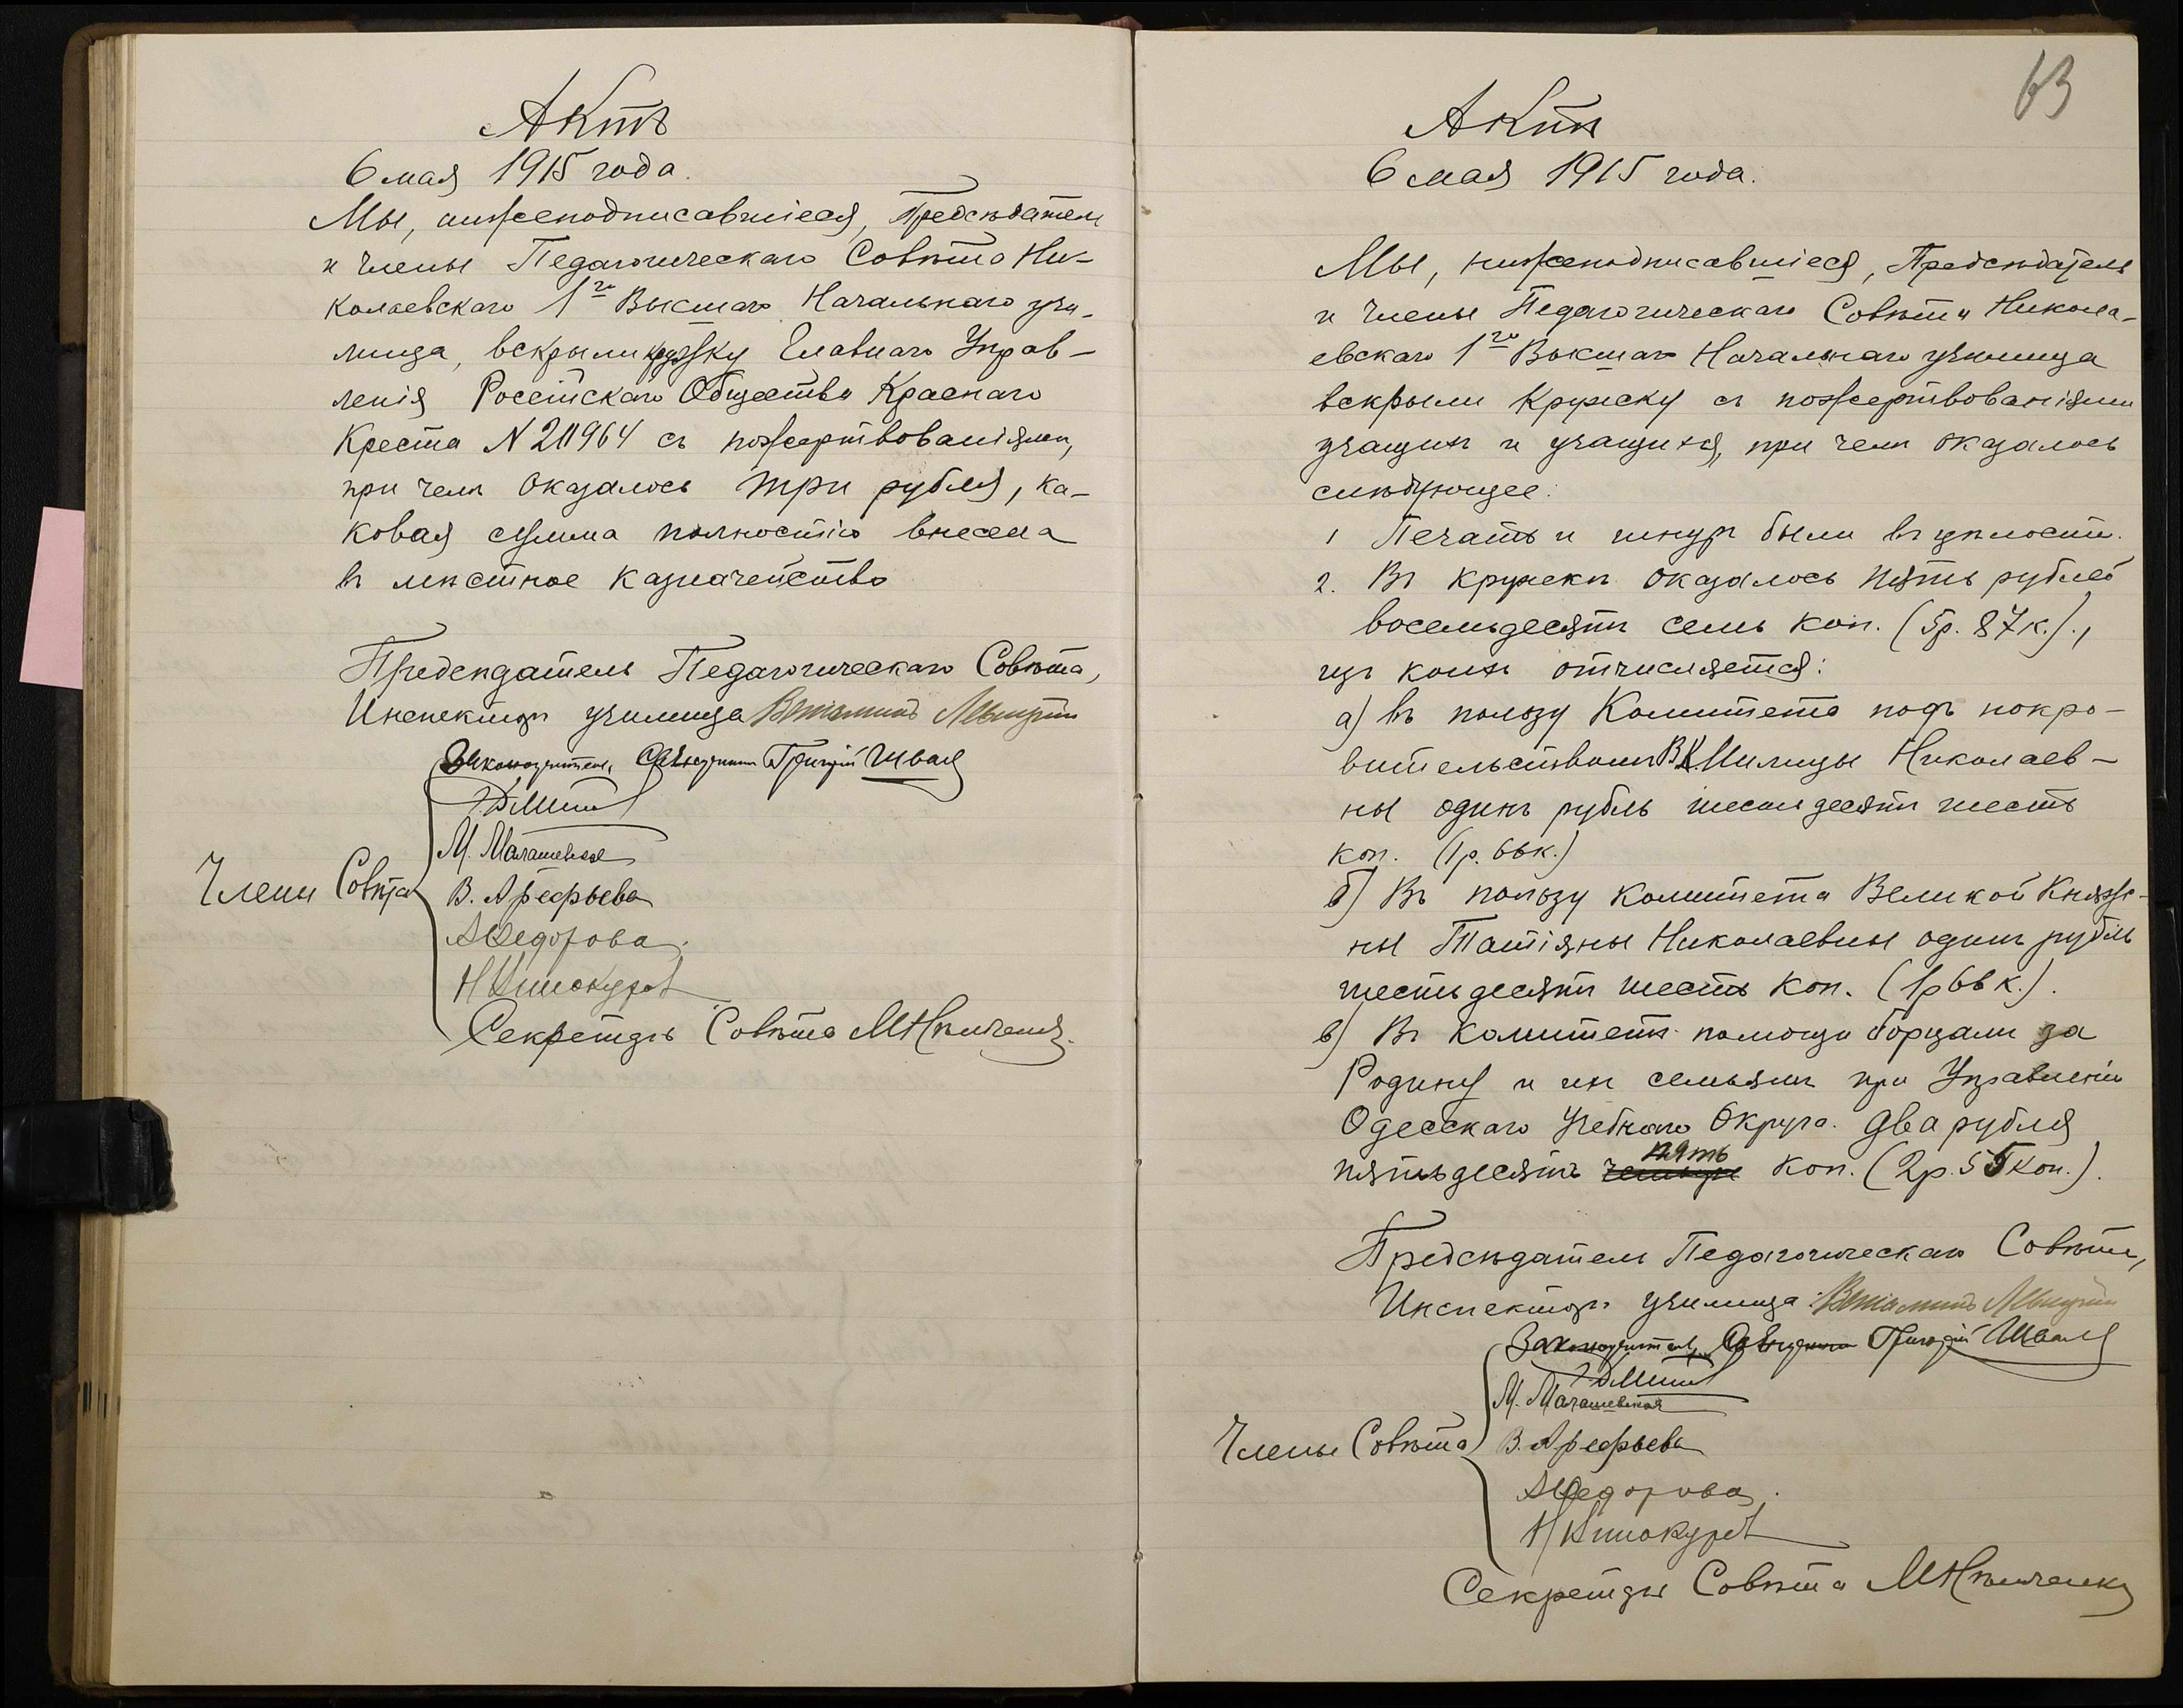 Актъ
6 мая 1915 года.
Мы, нижеподписавшіеся, Предсѣдатель
и члены Педагогическаго Совѣта Ни-
колаевскаго 1го Высшаго Начальнаго учи-
лища, вскрыли кружку Главнаго Управ-
ленія Россійскаго Общества Краснаго
Креста N 211964 съ пожертвованіями,
при чемъ оказалось три рубля, ка-
ковая сумма полностію внесена
въ мѣстное казначейство
Предсѣдатель Педагогическаго Совѣта,
Инспекторъ училища Веніаминъ
Законоучитель, Священникъ Григорій Швая
М. Малашевская
Члены Совѣта
В. Арефьева
АФедорова.
НВинокуров
Секретарь Совѣта
63
Актъ
6 мая 1915 года.
Мы, нижеподписавшіеся, Предсѣдатель
и члены Педагогическаго Совѣта Никола-
евскаго 1го Высшаго Начальнаго училища
вскрыли кружку съ пожертвованіями
учащихъ и учащихся, при чемъ оказалось
слѣдующее:
1 Печать и шнуръ были въ цѣлости.
2. Въ кружкѣ оказалось пять рублей
восемьдесятъ семь коп. (5р. 87к.).,
изъ коихъ отчисляется:
а) въ пользу Комитета подъ покро-
вительствомъ В.К. Милицы Николаев-
ны одинъ рубль шестьдесятъ шесть
коп. (1р. 66к.)
б) Въ пользу Комитета Великой Княж-
ны Татіяны Николаевны одинъ рубль
шестьдесятъ шесть коп. (1р 66 к.).
в) Въ Комитетъ помощи борцамъ за
Родину и ихъ семьямъ при Управленіи
Одесскаго Учебнаго Округа. два рубля
пять
пятьдесятъ четыре коп. (2р. 55 коп.).
Предсѣдатель Педагогическаго Совѣта,
Инспекторъ училища: Веніаминъ
Законоучитель, Священникъ Григорій Швая
М. Малашевская
Члены Совѣта
В. Арефьева
АФедорова.
НВинокуров
Секретарь Совѣта